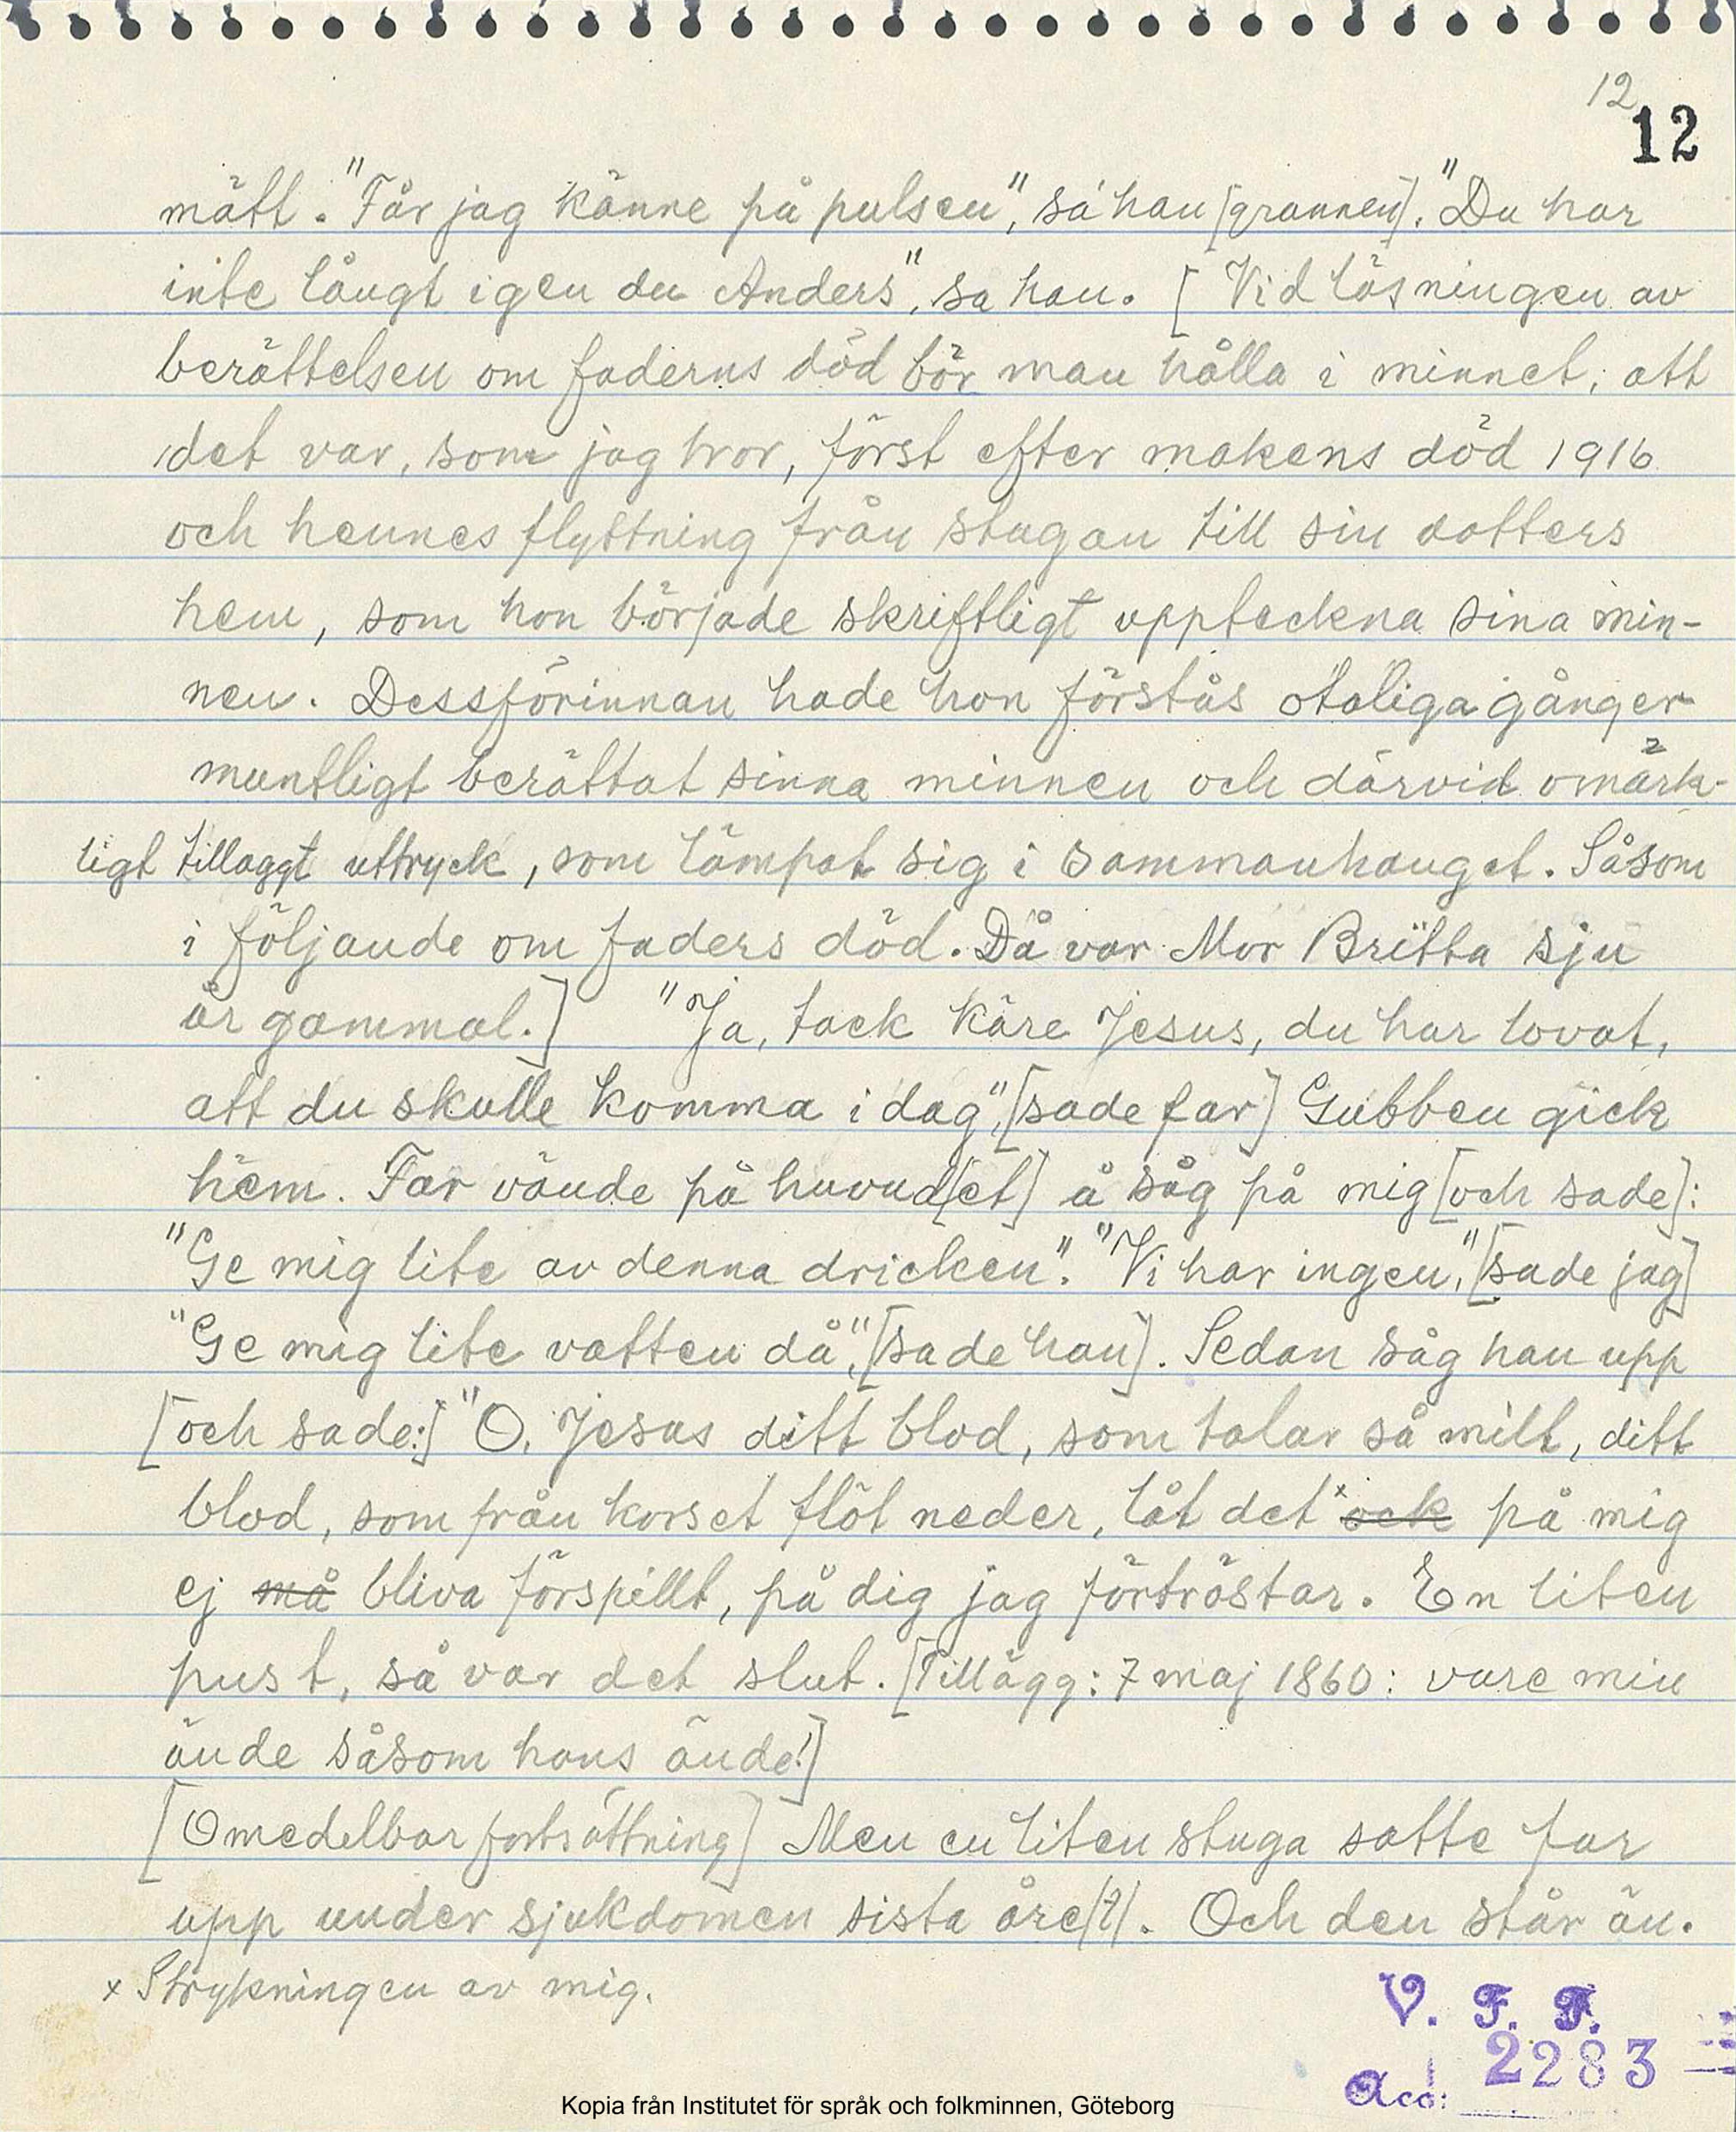 12
12
mätt. "Får jag känne på pulsen", sa' han [grannen]. "Du har
inte långt igen du Anders", sa han. [Vid läsningen av
berättelsen om faderns död bör man hålla i minnet, att
det var, som jag tror, först efter makens död 1916
och hennes flyttning från stugan till sin dotters
hem, som hon började skriftligt uppteckna sina min-
nen. Dessförinnan hade hon förstås otaliga gånger
muntligt berättat sinna minnen och därvid omärk-
ligt tillaggt uttryck, som lämpat sig i sammanhanget. Såsom
i följande om faders död. Då var Mor Britta sju
år gammal.] "Ja, tack käre Jesus, du har lovat,
att du skulle komma i dag", [sade far] Gubben gick
hem. Far vände på huvud[et] å såg på mig [och sade]:
"Ge mig lite av denna dricken". "Vi har ingen," [sade jag]
"Ge mig lite vatten då", [sade han]. Sedan såg han upp
[och sade:] "O, Jesus ditt blod, som talar så milt, ditt
blod, som från korset flöt neder, låt det x ock på mig
ej må bliva förspillt, på dig jag förtröstar. En liten
pust, så var det slut. [Tillägg: 7 maj 1860: vare min
ände såsom hans ände!]
[Omedelbar fortsättning] Men en liten stuga satte far
upp under sjukdomen sista åre(?). Och den står än.
x Strykningen av mig.
V. F. F.
Acc: 2283
Kopia från Institutet för språk och folkminnen, Göteborg